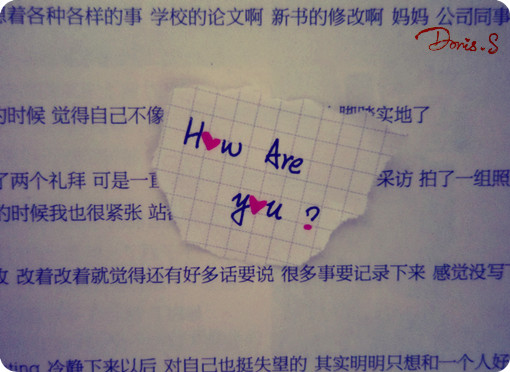 着各种各样的事 学校的论文啊 新书的修改啊 妈妈 公司同事
Doris.S
的时候 觉得自己不像
实地了
How Are
you?
了两个礼拜 可是一
采访 拍了一组照
的时候我也很紧张 站
改着改着就觉得还有好多话要说 很多事要记录下来 感觉没写
ting 冷静下来以后 对自己也挺失望的 其实明明只想和一个人好